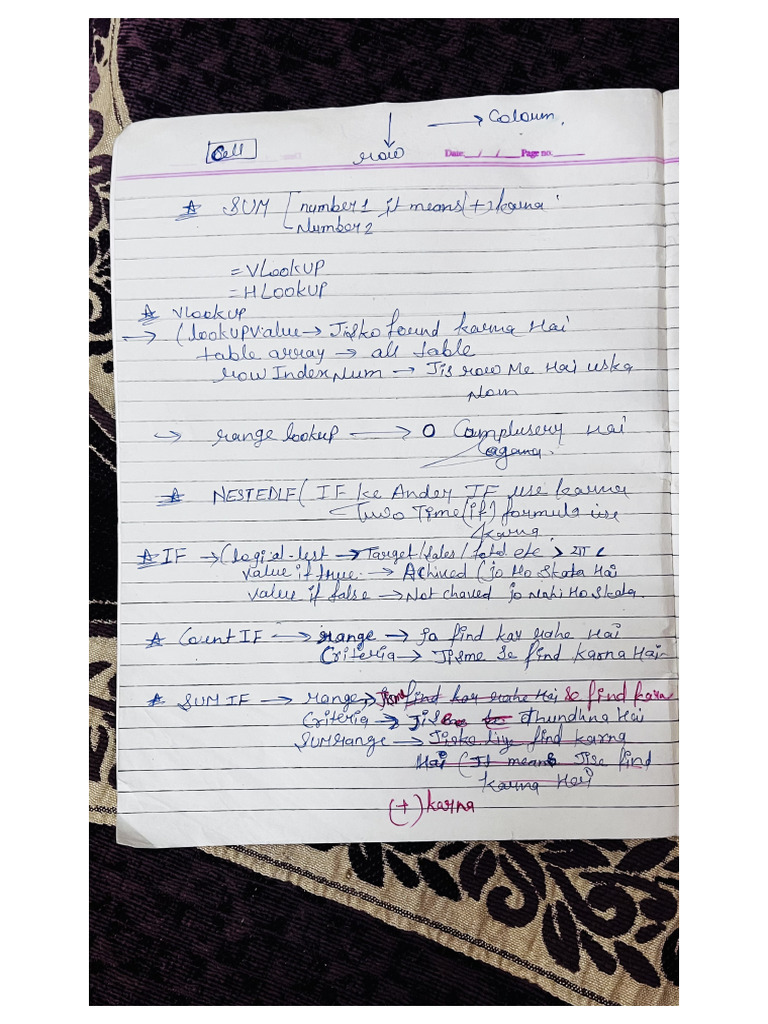 → Coloum.
Cell
row
Date: / / Page no.
☆ SUM [number1, it means (+) karna
Number2
= VLookUP
= HLookUP
☆ VLookUP
→ (lookupvalue → Jisko found karna Hai
table array → all table
row Index Num → Jis row Me Hai uska
Nam
→ range lookup → 0 Complusery Hai
lagana.
☆ NESTEDIF ( IF ke Ander IF use karna
Two Time (if) formula use
karna.
☆ IF → (logical-test → Target/Sales/total etc > या <
value if true. → Achived (jo Ho Skata Hai
value if false → Not chaved jo Nahi Ho Skata.
☆ Count IF → range → jo find kar rahe Hai
Criteria → Jisme se find karna Hai.
☆ SUM IF → range → Jisme find kar rahe Hai se find karna
Criteria → Jise dhundhna Hai
SUMrange → Jisko liye find karna
Hai (It means Jise find
karna Hai)
(+) karna